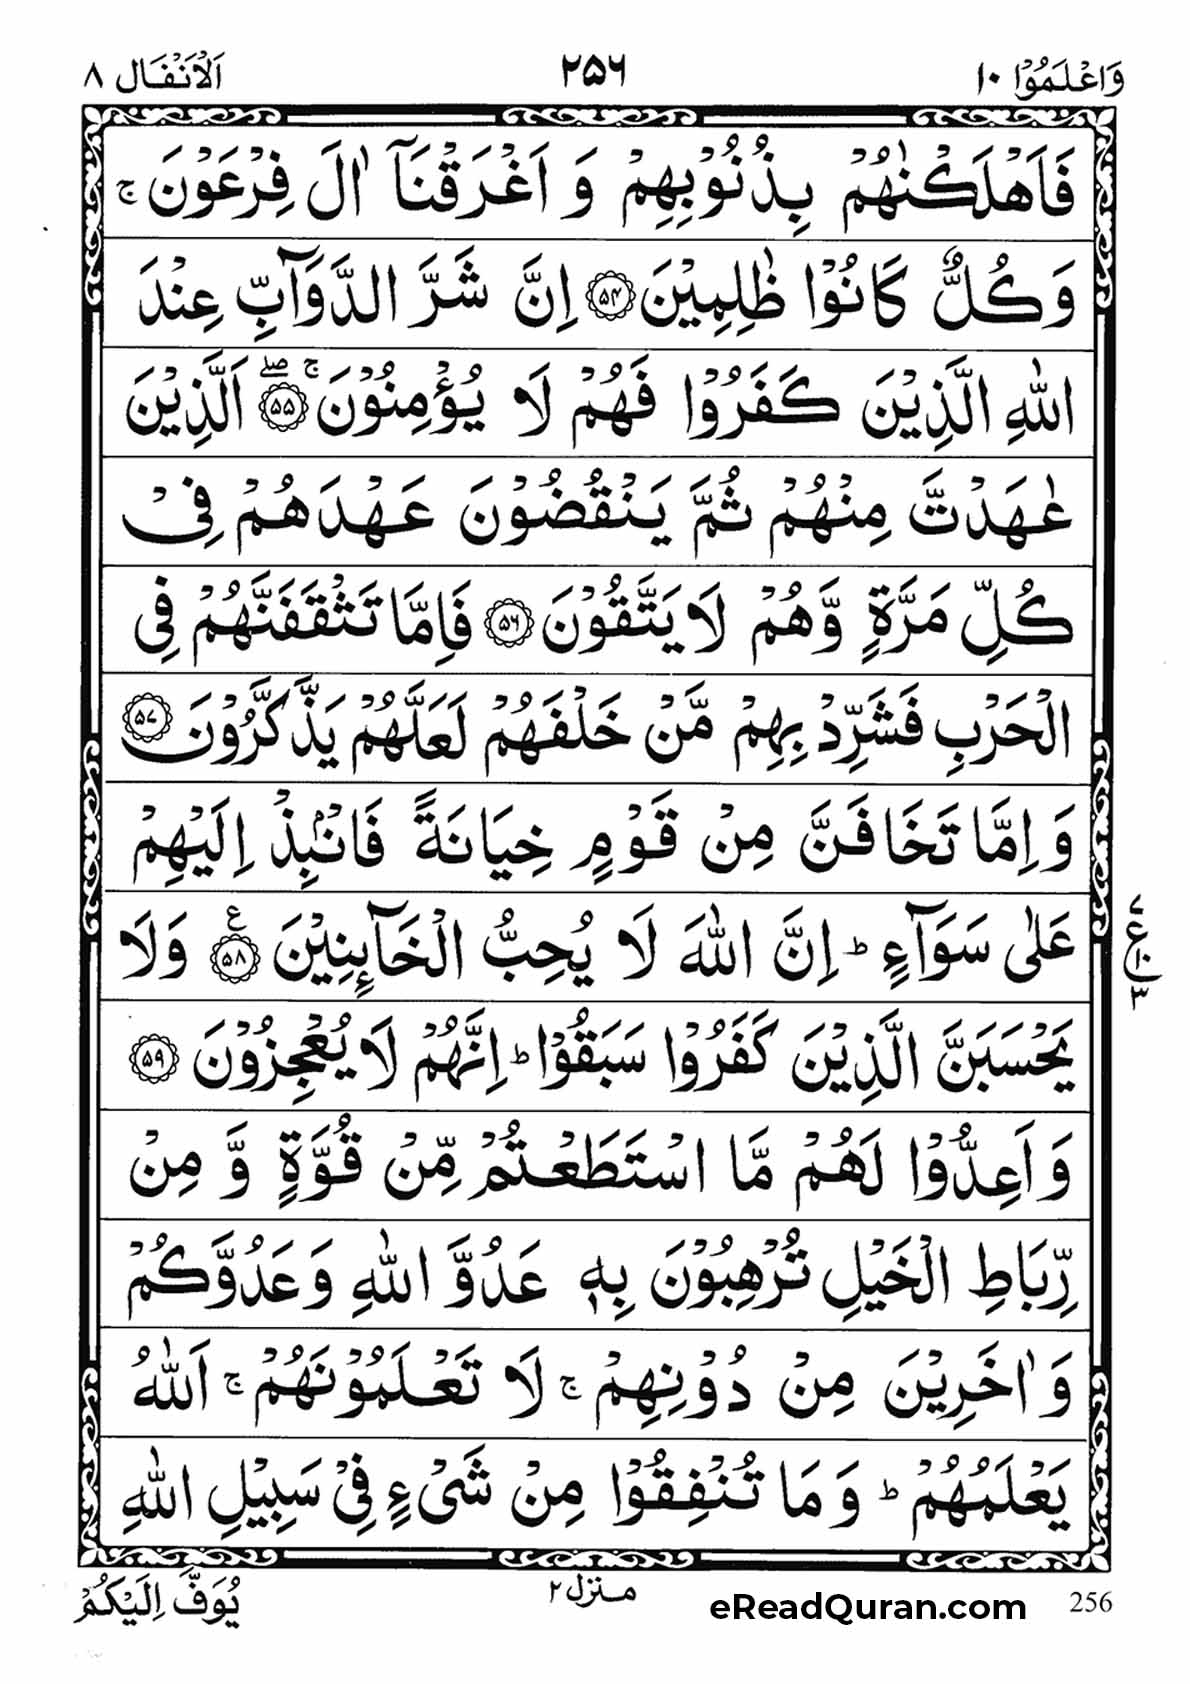 وَاعْلَمُوْا ۱۰
۲۵۶
اَلْاَنْفَال ۸
فَاَهْلَكْنٰهُمْ بِذُنُوْبِهِمْ وَ اَغْرَقْنَاۤ اٰلَ فِرْعَوْنَ ۚ
وَ كُلٌّ كَانُوْا ظٰلِمِيْنَ ۝۵۴ اِنَّ شَرَّ الدَّوَآبِّ عِنْدَ
اللّٰهِ الَّذِيْنَ كَفَرُوْا فَهُمْ لَا يُؤْمِنُوْنَ ۚۖ ۝۵۵ اَلَّذِيْنَ
عٰهَدْتَّ مِنْهُمْ ثُمَّ يَنْقُضُوْنَ عَهْدَهُمْ فِيْ
كُلِّ مَرَّةٍ وَّهُمْ لَا يَتَّقُوْنَ ۝۵۶ فَاِمَّا تَثْقَفَنَّهُمْ فِي
الْحَرْبِ فَشَرِّدْ بِهِمْ مَّنْ خَلْفَهُمْ لَعَلَّهُمْ يَذَّكَّرُوْنَ ۝۵۷
وَ اِمَّا تَخَافَنَّ مِنْ قَوْمٍ خِيَانَةً فَانْۢبِذْ اِلَيْهِمْ
عَلٰى سَوَآءٍ ؕ اِنَّ اللّٰهَ لَا يُحِبُّ الْخَآئِنِيْنَ ۝۵۸ ع وَلَا
يَحْسَبَنَّ الَّذِيْنَ كَفَرُوْا سَبَقُوْا ؕ اِنَّهُمْ لَا يُعْجِزُوْنَ ۝۵۹
وَ اَعِدُّوْا لَهُمْ مَّا اسْتَطَعْتُمْ مِّنْ قُوَّةٍ وَّ مِنْ
رِّبَاطِ الْخَيْلِ تُرْهِبُوْنَ بِهٖ عَدُوَّ اللّٰهِ وَ عَدُوَّكُمْ
وَ اٰخَرِيْنَ مِنْ دُوْنِهِمْ ۚ لَا تَعْلَمُوْنَهُمْ ۚ اَللّٰهُ
يَعْلَمُهُمْ ؕ وَ مَا تُنْفِقُوْا مِنْ شَيْءٍ فِيْ سَبِيْلِ اللّٰهِ
۷
ع ۱۰
۳
يُوَفَّ اِلَيْكُمْ
منزل ۲
eReadQuran.com
256